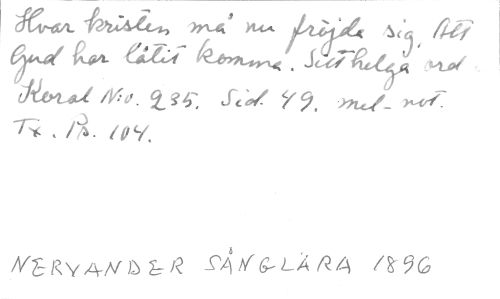 Hvar kristen må nu fröjda sig, Att
Gud har låtit komma. Sitt helga ord
Koral N:o. 235. Sid. 49. mel-not.
Tx. Ps. 104.
NERVANDER SÅNGLÄRA 1896